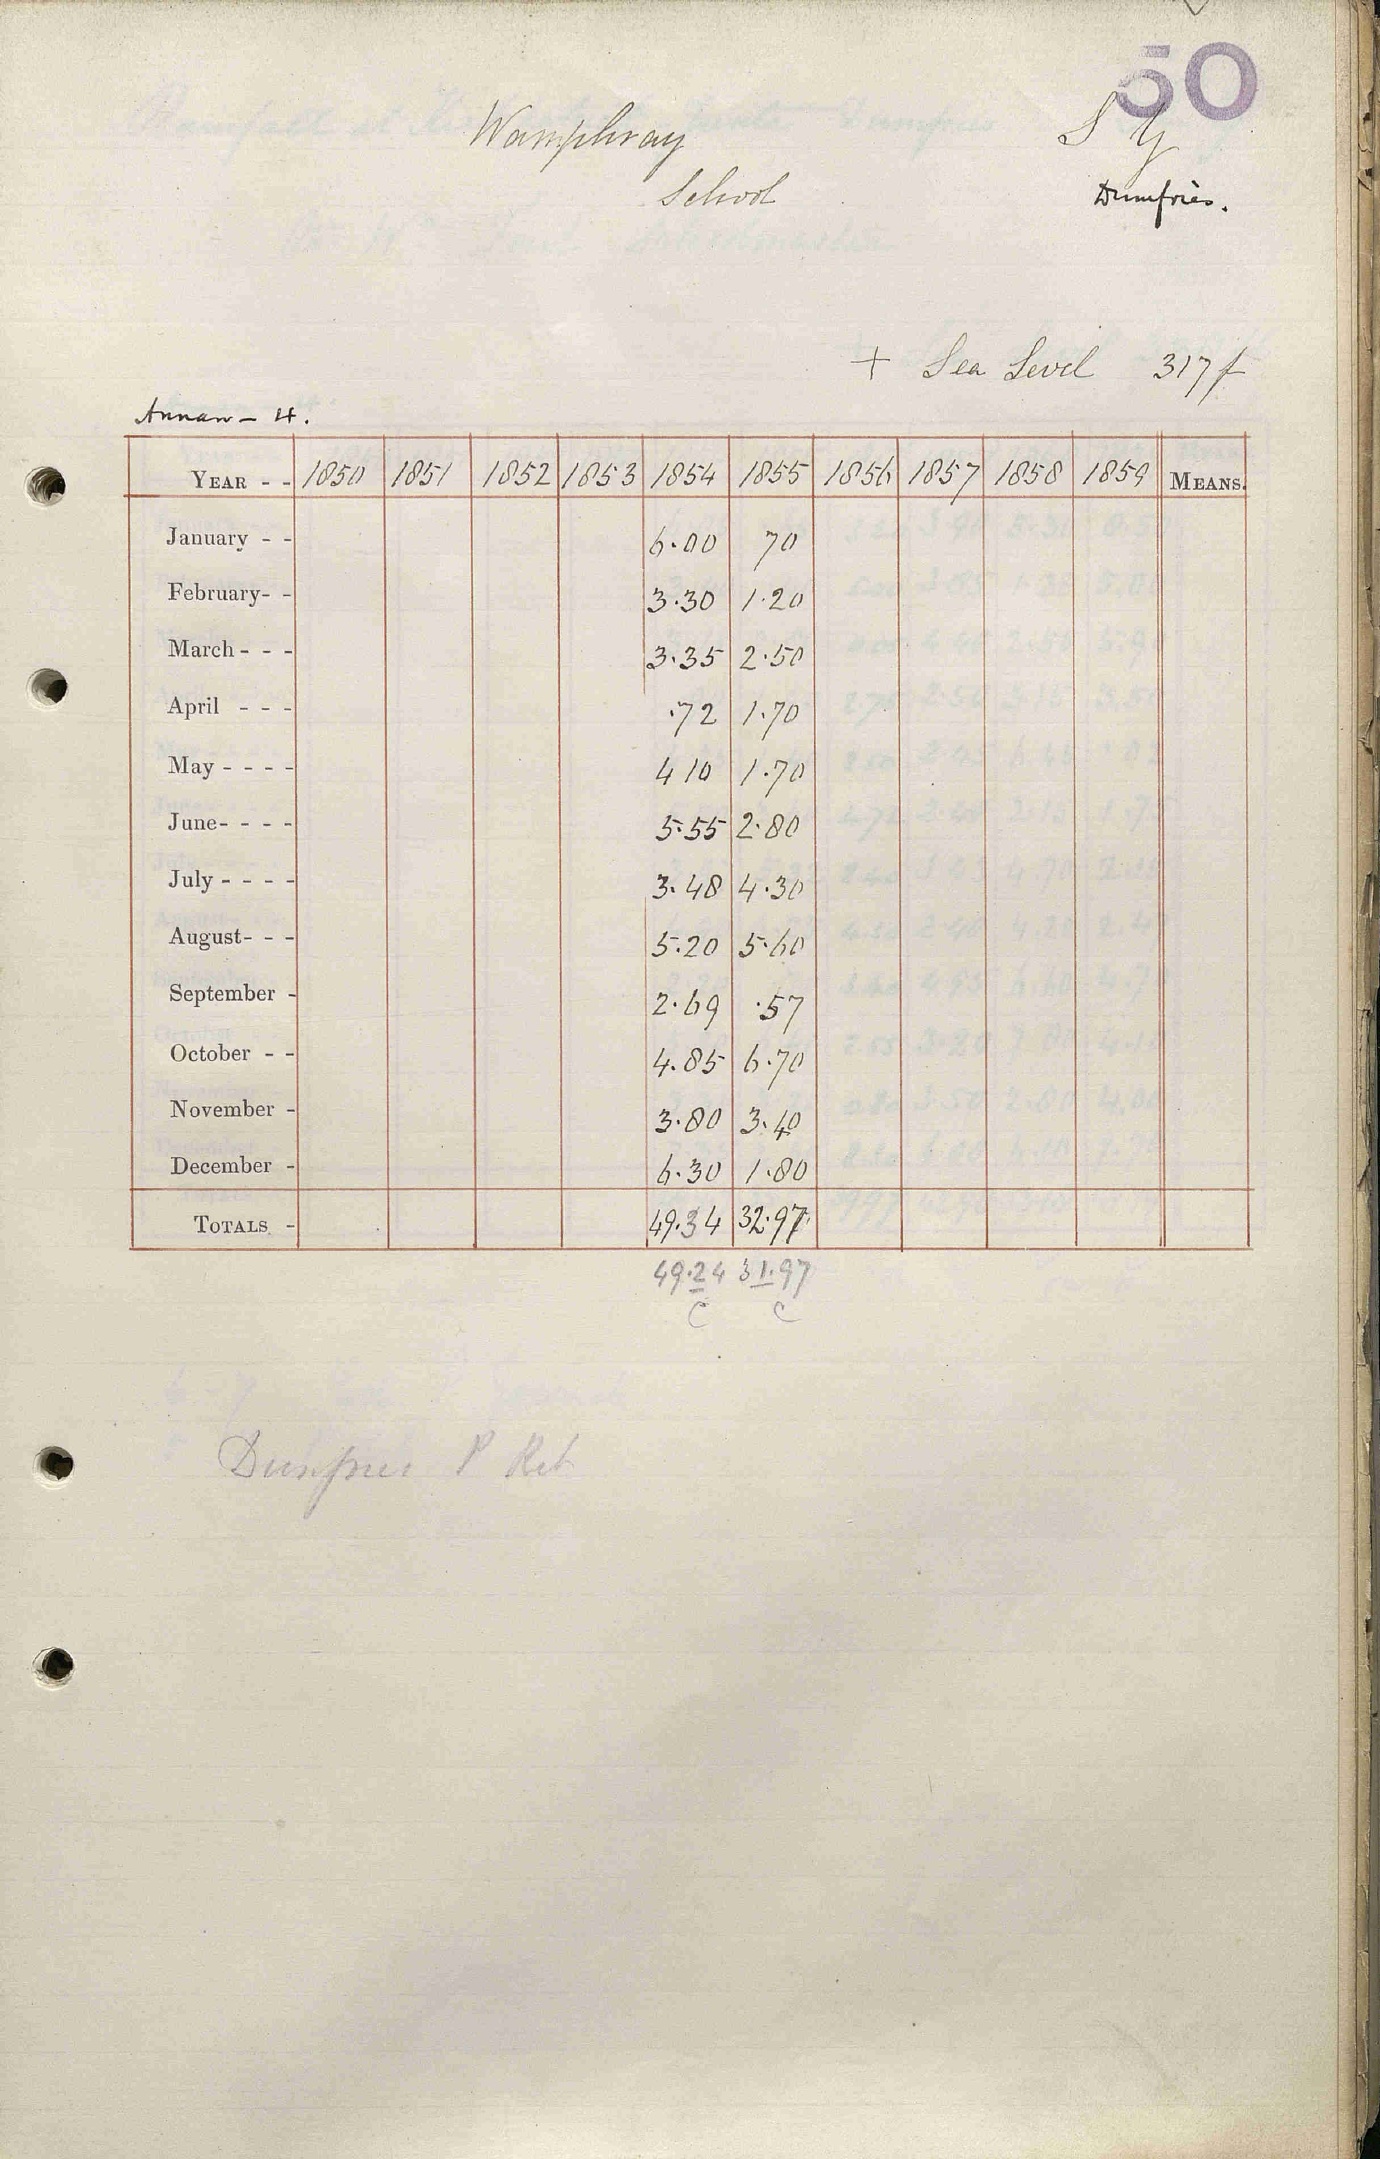 50
Wamphray S Y
School Dumfries.
+ Sea Level 317 f
Annan - 4.
YEAR - - 1850 1851 1852 1853 1854 1855 1856 1857 1858 1859 MEANS.
January - - 6.00 70
February- - 3.30 1.20
March - - - 3.35 2.50
April - - - .72 1.70
May - - - - 4 10 1.70
June- - - - 5.55 2.80
July - - - - 3.48 4.30
August- - - 5.20 5.60
September - 2.69 .57
October - - 4.85 6.70
November - 3.80 3.40
December - 6.30 1.80
TOTALS - 49.34 32.97
49.24 31.97
C C
Dumfries P Ret